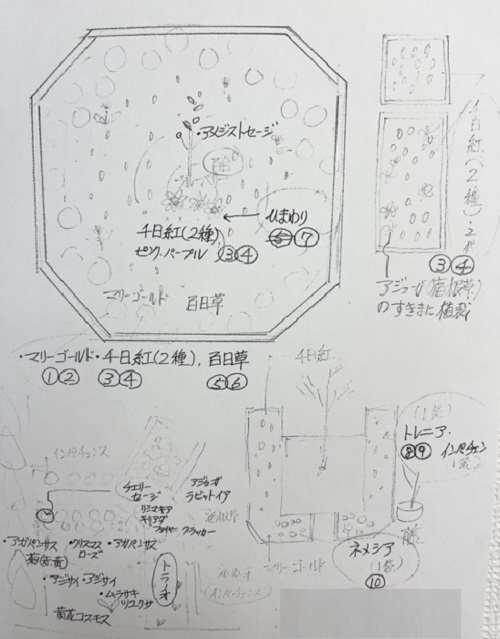 ・アメジストセージ
ひまわり
⑤⑦
千日紅(2種)
ピンク.パープル ③④
マリーゴールド 百日草
千日紅(2種)
③④
アジュガ(宿根草)
のすきまに植栽
・マリーゴールド・千日紅(2種), 百日草
①② ③④ ⑤⑥
千日紅
(1袋)
トレニア・
⑧⑨ インパチェンス
インパチェンス
チェリー
セージ
アジュガ
ラビットイア
リシマキア
キリアダ
ファイヤークラッカー
宿根草
・アガパンサス ・クリスマスローズ ・アガパンサス
・アジサイ・アジサイ
・ムラサキ
ツユクサ
黄花コスモス
トライオ
マリーゴールド
ネメシア
(1袋)
⑩
藤
(インパチェンス)